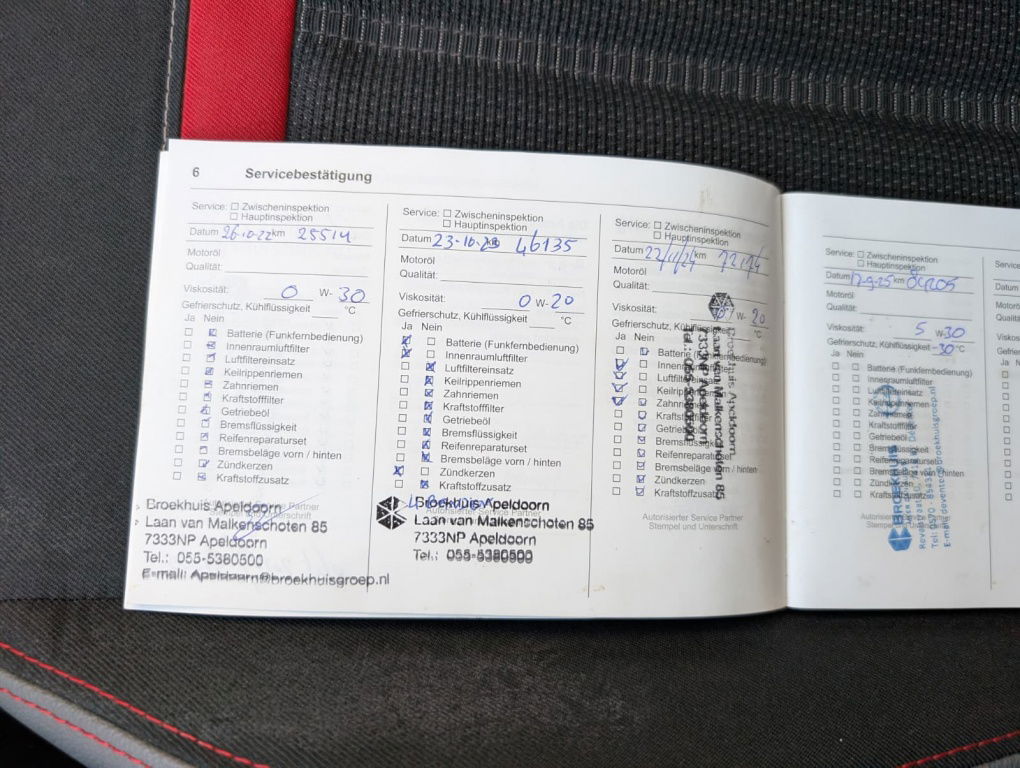 6 Servicebestätigung
Service: Zwischeninspektion
Hauptinspektion
Datum 26-10-22 km 25514
Motoröl
Qualität:
Viskosität: 0 W- 30
Gefrierschutz, Kühlflüssigkeit °C
Ja Nein
Batterie (Funkfernbedienung)
Innenraumluftfilter
Luftfiltereinsatz
Keilrippenriemen
Zahnriemen
Kraftstofffilter
Getriebeöl
Bremsflüssigkeit
Reifenreparaturset
Bremsbeläge vorn / hinten
Zündkerzen
Kraftstoffzusatz
Broekhuis Apeldoorn
Laan van Malkenschoten 85
7333NP Apeldoorn
Tel.: 055-5380500
E-mail: Apeldoorn@broekhuisgroep.nl
Service: Zwischeninspektion
Hauptinspektion
Datum 23-10-23 46135
Motoröl
Qualität:
Viskosität: 0 W- 20
Gefrierschutz, Kühlflüssigkeit °C
Ja Nein
Batterie (Funkfernbedienung)
Innenraumluftfilter
Luftfiltereinsatz
Keilrippenriemen
Zahnriemen
Kraftstofffilter
Getriebeöl
Bremsflüssigkeit
Reifenreparaturset
Bremsbeläge vorn / hinten
Zündkerzen
Kraftstoffzusatz
Autorisierter Service Partner
Broekhuis Apeldoorn
Laan van Malkenschoten 85
7333NP Apeldoorn
Tel.: 055-5380500
Service: Zwischeninspektion
Hauptinspektion
Datum km
Motoröl
Qualität:
Viskosität: W- 20
Gefrierschutz, Kühlflüssigkeit °C
Ja Nein
Batterie (Funkfernbedienung)
Innenraumluftfilter
Luftfiltereinsatz
Keilrippenriemen
Zahnriemen
Kraftstofffilter
Getriebeöl
Bremsflüssigkeit
Reifenreparaturset
Bremsbeläge vorn / hinten
Zündkerzen
Kraftstoffzusatz
Autorisierter Service Partner
Stempel und Unterschrift
Broekhuis Apeldoorn
Laan van Malkenschoten 85
7333NP Apeldoorn
Tel.: 055-5380500
Service: Zwischeninspektion
Hauptinspektion
Datum km
Motoröl
Qualität:
Viskosität: 5 W- 30
Gefrierschutz, Kühlflüssigkeit -30 °C
Ja Nein
Batterie (Funkfernbedienung)
Innenraumluftfilter
Luftfiltereinsatz
Keilrippenriemen
Zahnriemen
Kraftstofffilter
Getriebeöl
Bremsflüssigkeit
Reifenreparaturset
Bremsbeläge vorn / hinten
Zündkerzen
Kraftstoffzusatz
BROEKHUIS
Service:
Datum
Motoröl